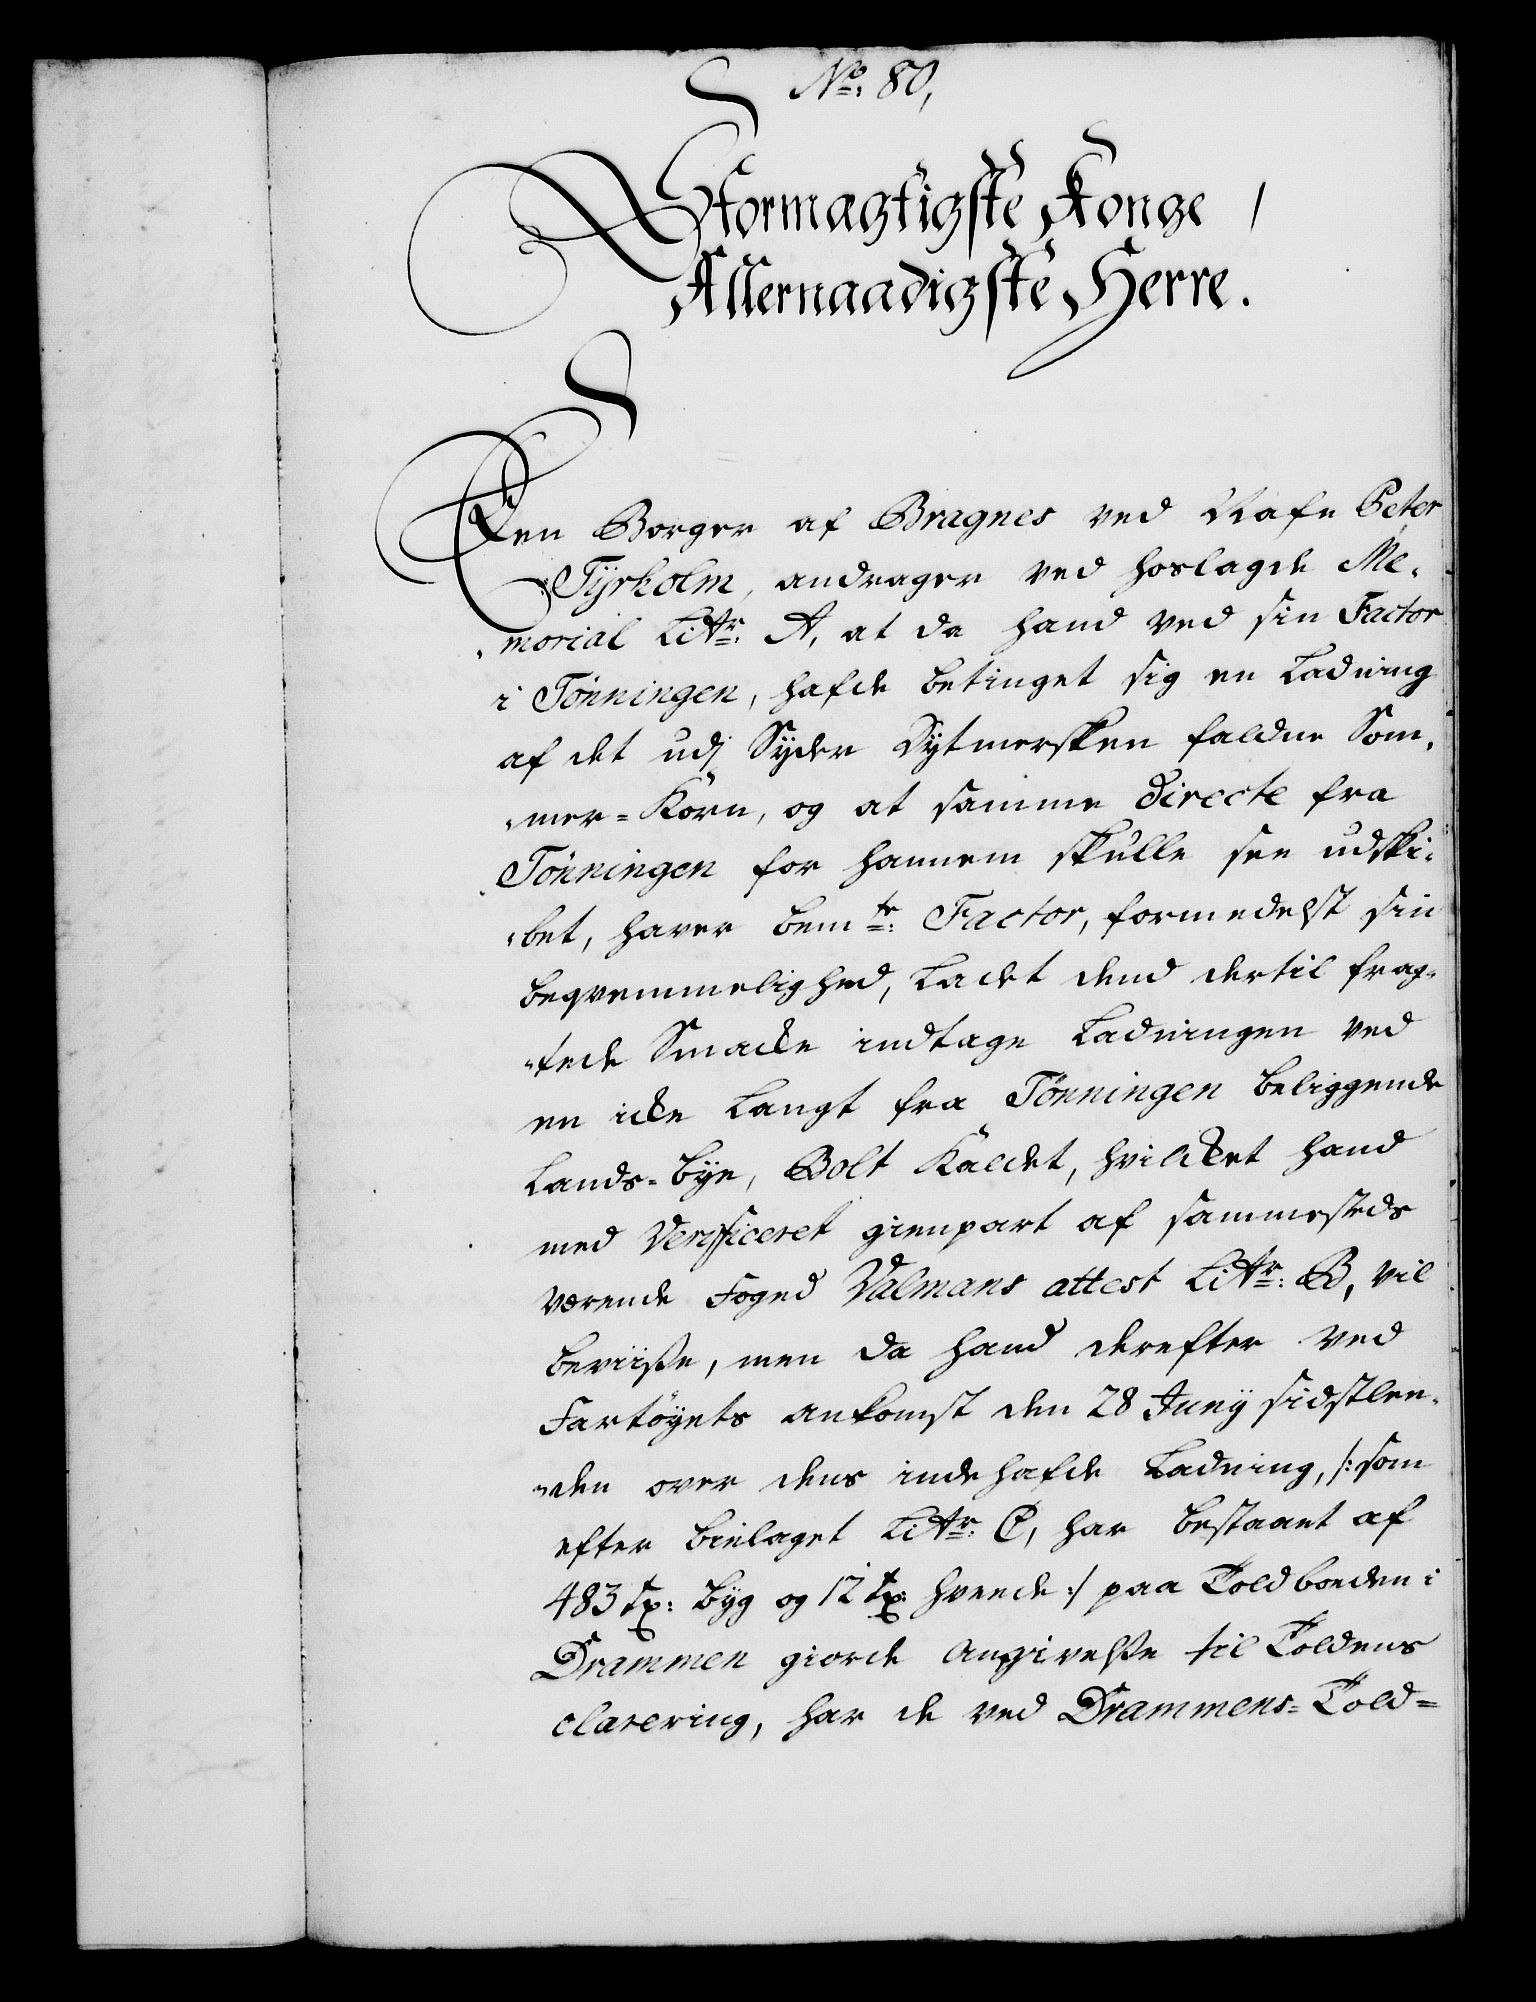 No. 80,
Stormægtigste Konge /
Allernaadigste Herre.
Een Borger af Bragnes ved Nafn Peter
Tÿrholm, andrager ved hoslagde Me,
,morial Littr. A, at da hand ved sin Factor
i Tønningen, hafde betinget sig en Ladning
af det udj Syder Dytmersken faldne Som,
,mer-Korn, og at samme directe fra
Tønningen for hannem skulle see udski,
,bet, haver bemte: Factor, formedelst sin
beqvemmelighed, Ladet dend dertil frag,
,tede Smacke indtage Ladningen ved
en icke Langt fra Tønningen beliggende
Lands-bÿe, Bolt Kaldet, hvilcket hand
med Verificeret gienpart af sammesteds
værende Foged Valmans attest Littr: B, vil
beviiße, men da hand derefter ved
Fartøÿets ankomst den 28 Junÿ sidstlee,
,den over dens indehafde Ladning, /: som
efter bielaget Littr: C, har bestaaet af
483 tr: bÿg og 12 tr: hvede :/ paa Toldboeden i
Drammen giorde Angivelße til Toldens
clarering, har de ved Drammens-Told-